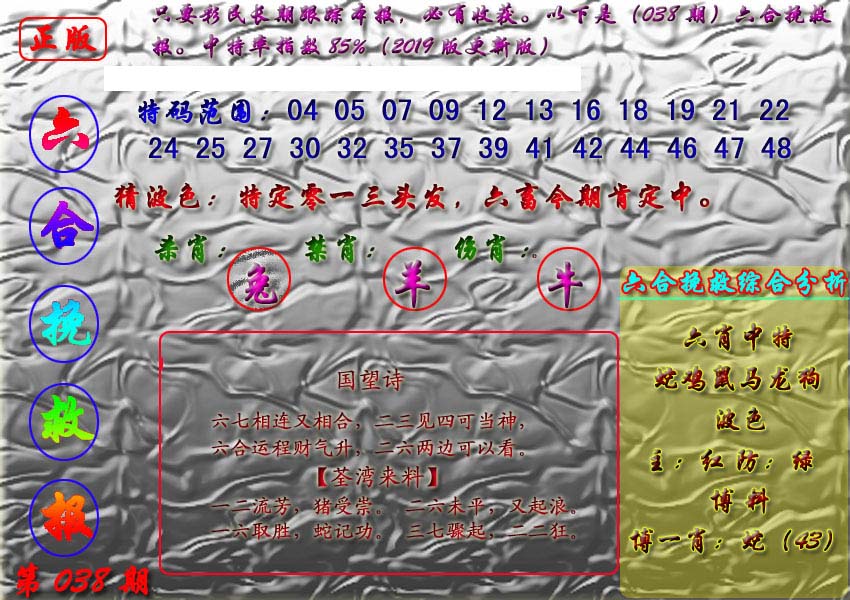 正版
只要彩民长期跟踪本报，必有收获。以下是（038期）六合挽救
报。中特率指数85%（2019版更新版）
六合挽救报
特码范围：04 05 07 09 12 13 16 18 19 21 22
24 25 27 30 32 35 37 39 41 42 44 46 47 48
猜波色：特定零一三头发，六畜今期肯定中。
杀肖：兔 禁肖：羊 伤肖：牛
国望诗
六七相连又相合，二三见四可当神，
六合运程财气升，二六两边可以看。
【荃湾来料】
一二流芳，猪受祟。 二六未平，又起浪。
一六取胜，蛇记功。 三七骤起，二二狂。
六合挽救综合分析
六肖中特
蛇鸡鼠马龙狗
波色
主：红防：绿
博料
博一肖：蛇（43）
第038期